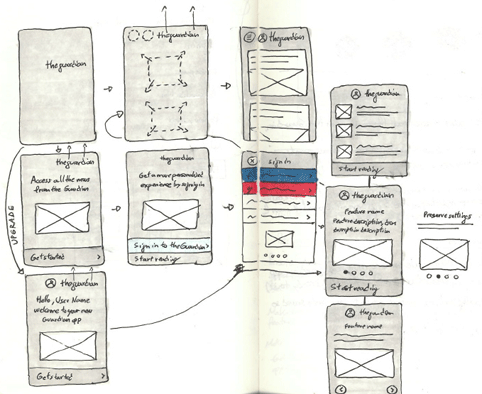 theguardian
theguardian
theguardian
theguardian
Start reading
theguardian
Access all the news
from the Guardian
Get started >
theguardian
Get a more personalised
experience by signing in
Sign in to the Guardian >
Start reading
sign in
theguardian
Feature name
Feature description, description
description description
Start reading
Preserve settings
UPGRADE
theguardian
Hello, User Name
welcome to your new
Guardian app
Get started >
theguardian
Feature name